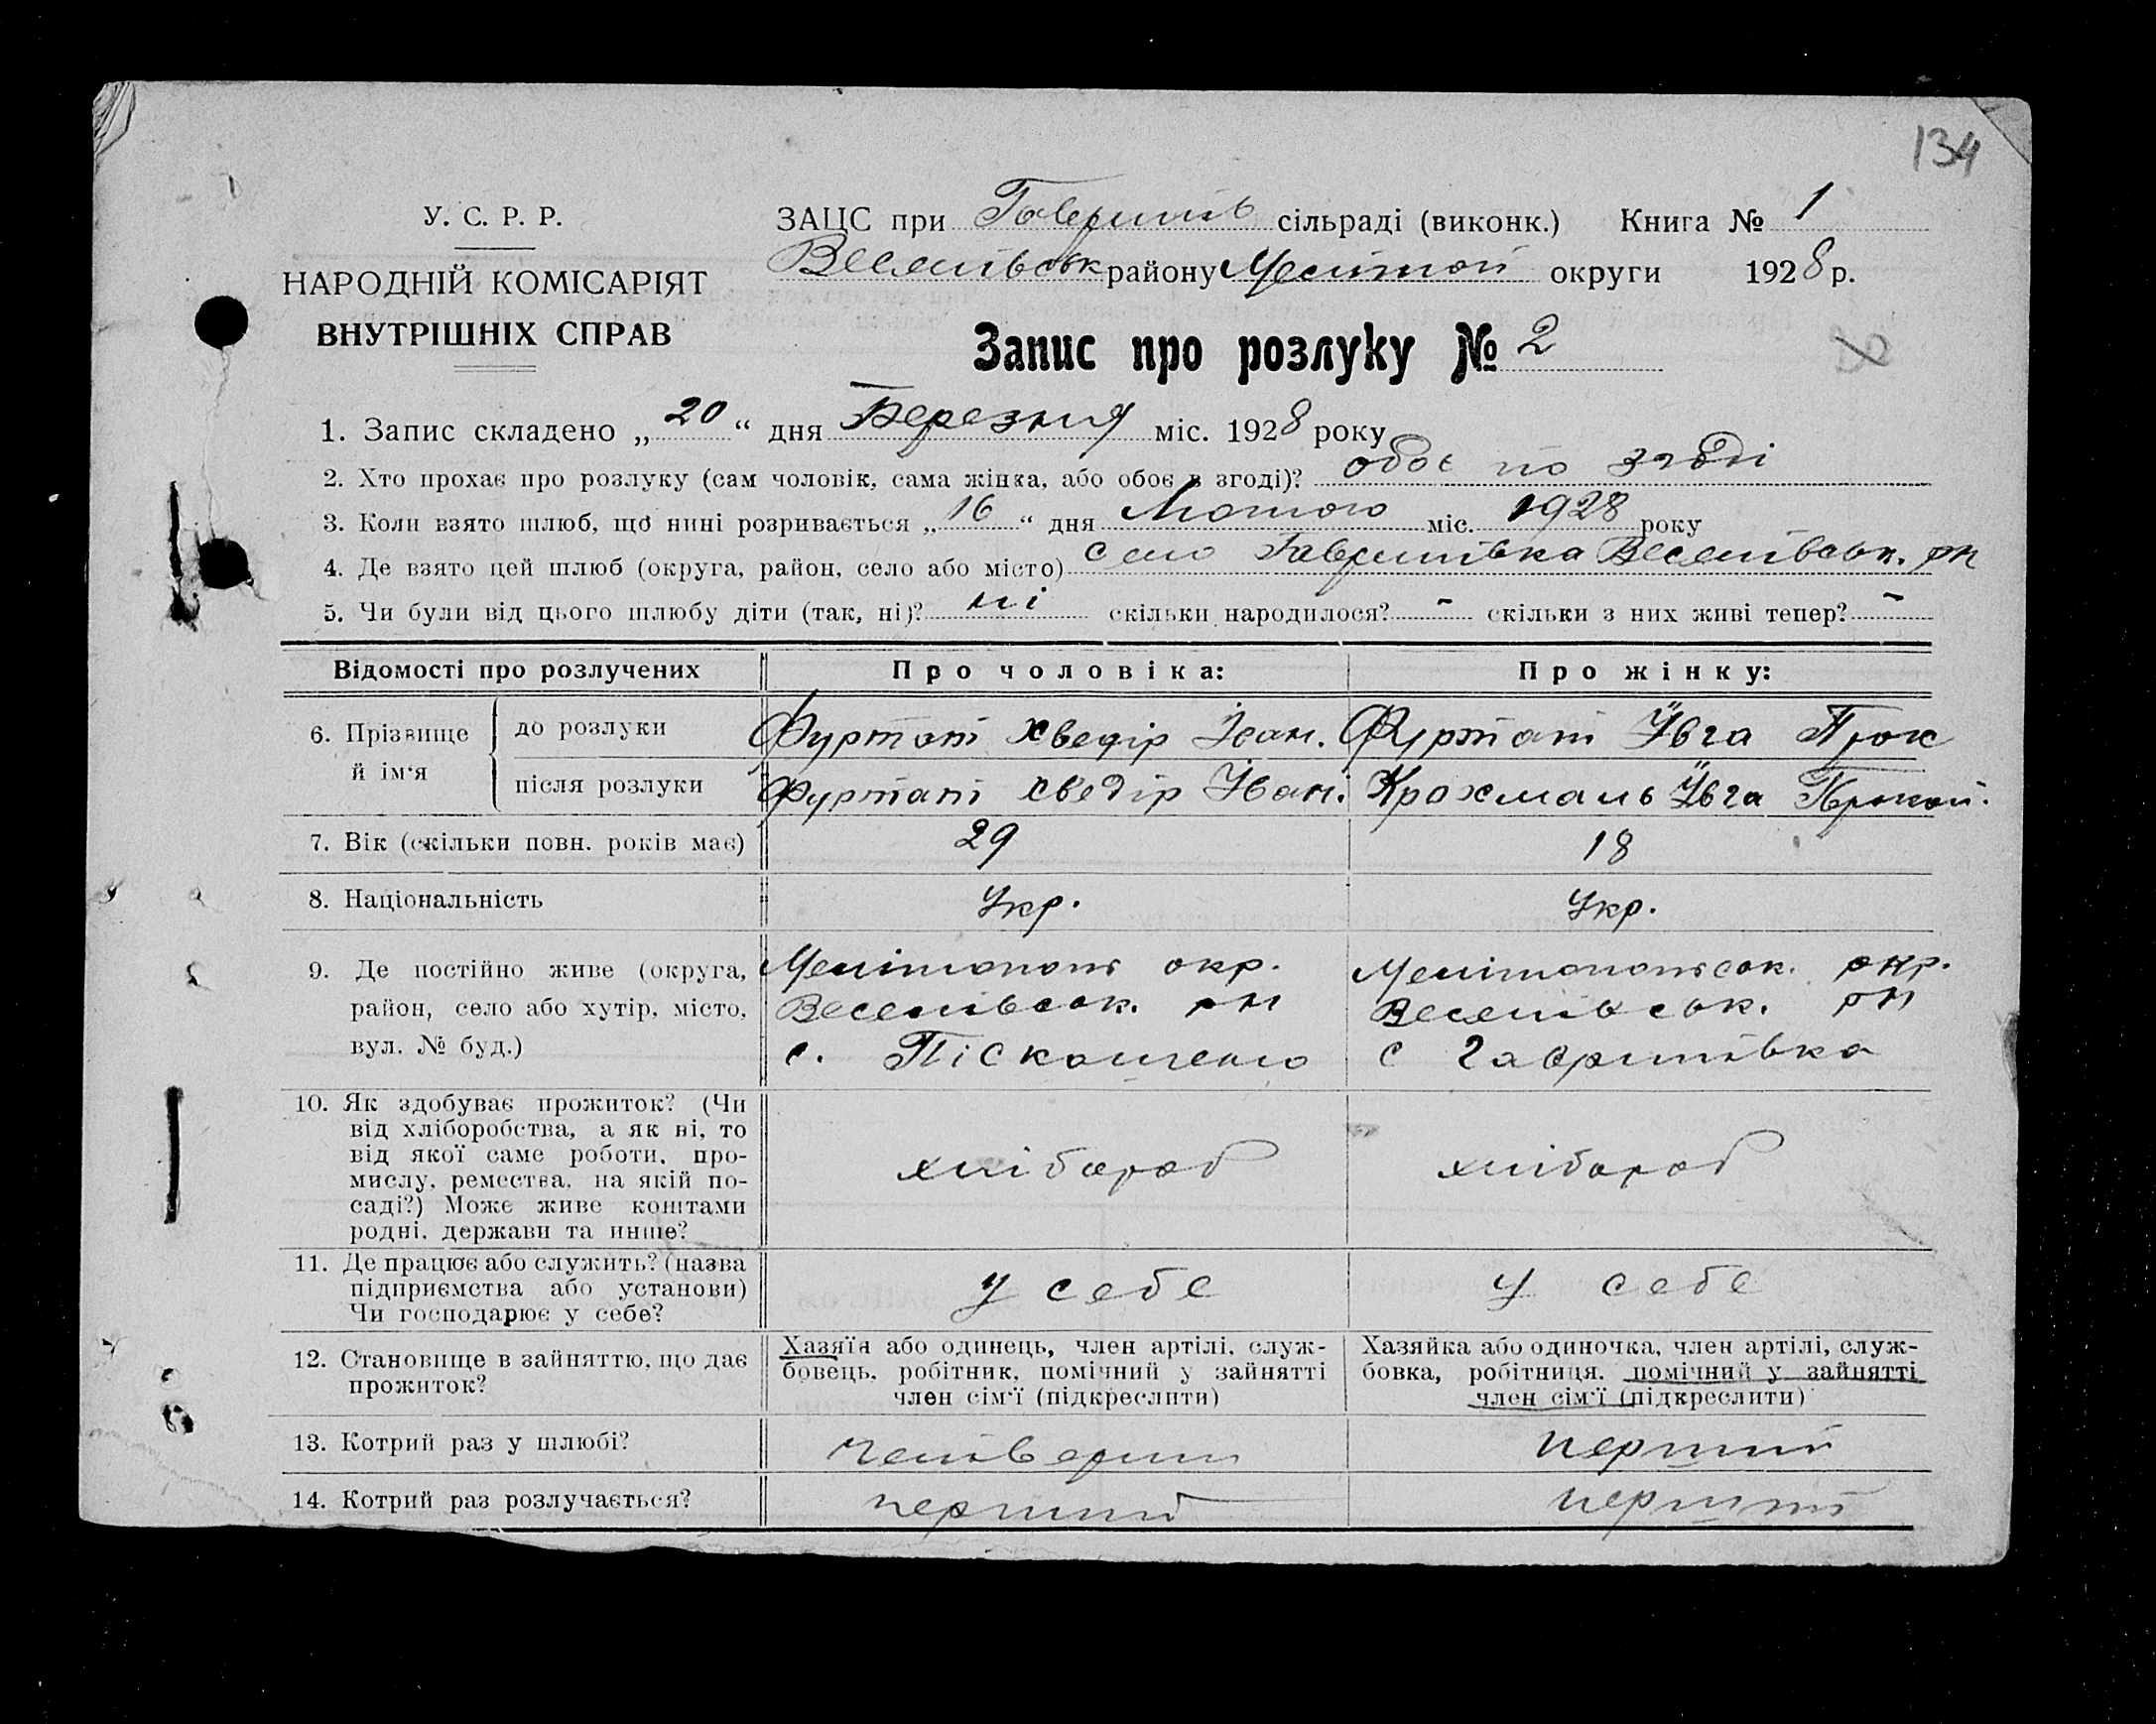 134
У. С. Р. Р.
НАРОДНІЙ КОМІСАРІЯТ
ВНУТРІШНІХ СПРАВ
ЗАЦС при Гаврилів сільраді (виконк.) Книга № 1
Веселівськ району Мелітоп округи 1928 р.
Запис про розлуку № 2
1. Запис складено „20“ дня Березня міс. 1928 року
2. Хто прохає про розлуку (сам чоловік, сама жінка, або обоє в згоді)? обоє по згоді
3. Коли взято шлюб, що нині розривається „16“ дня Лютого міс. 1928 року
4. Де взято цей шлюб (округа, район, село або місто) село Гаврилівка Веселівськ. рн
5. Чи були від цього шлюбу діти (так, ні)? ні скільки народилося? - скільки з них живі тепер? -
Відомості про розлучених Про чоловіка: Про жінку:
6. Прізвище й ім'я
до розлуки Фуртат Хведір Іван. Фуртат Ївга Прок
після розлуки Фуртат Хведір Іван. Крохмаль Ївга Прокоп.
7. Вік (скільки повн. років має) 29 18
8. Національність Укр. Укр.
9. Де постійно живе (округа, Мелітопольс окр. Мелітопольськ. окр.
район, село або хутір, місто, Веселівськ. рн Веселівськ. рн
вул. № буд.) с. Піскошено с Гаврилівка
10. Як здобуває прожиток? (Чи
від хліборобства, а як ні, то
від якої саме роботи, про-
мислу, ремества, на якій по- хлібороб хлібороб
саді?) Може живе коштами
родні, держави та инше?
11. Де працює або служить? (назва
підприємства або установи) у себе у себе
Чи господарює у себе?
12. Становище в зайняттю, що дає прожиток?
Хазяїн або одинець, член артілі, служ-
бовець, робітник, помічний у зайнятті
член сім'ї (підкреслити)
Хазяйка або одиночка, член артілі, служ-
бовка, робітниця, помічний у зайнятті
член сім'ї (підкреслити)
13. Котрий раз у шлюбі? перший
14. Котрий раз розлучається? перший перший